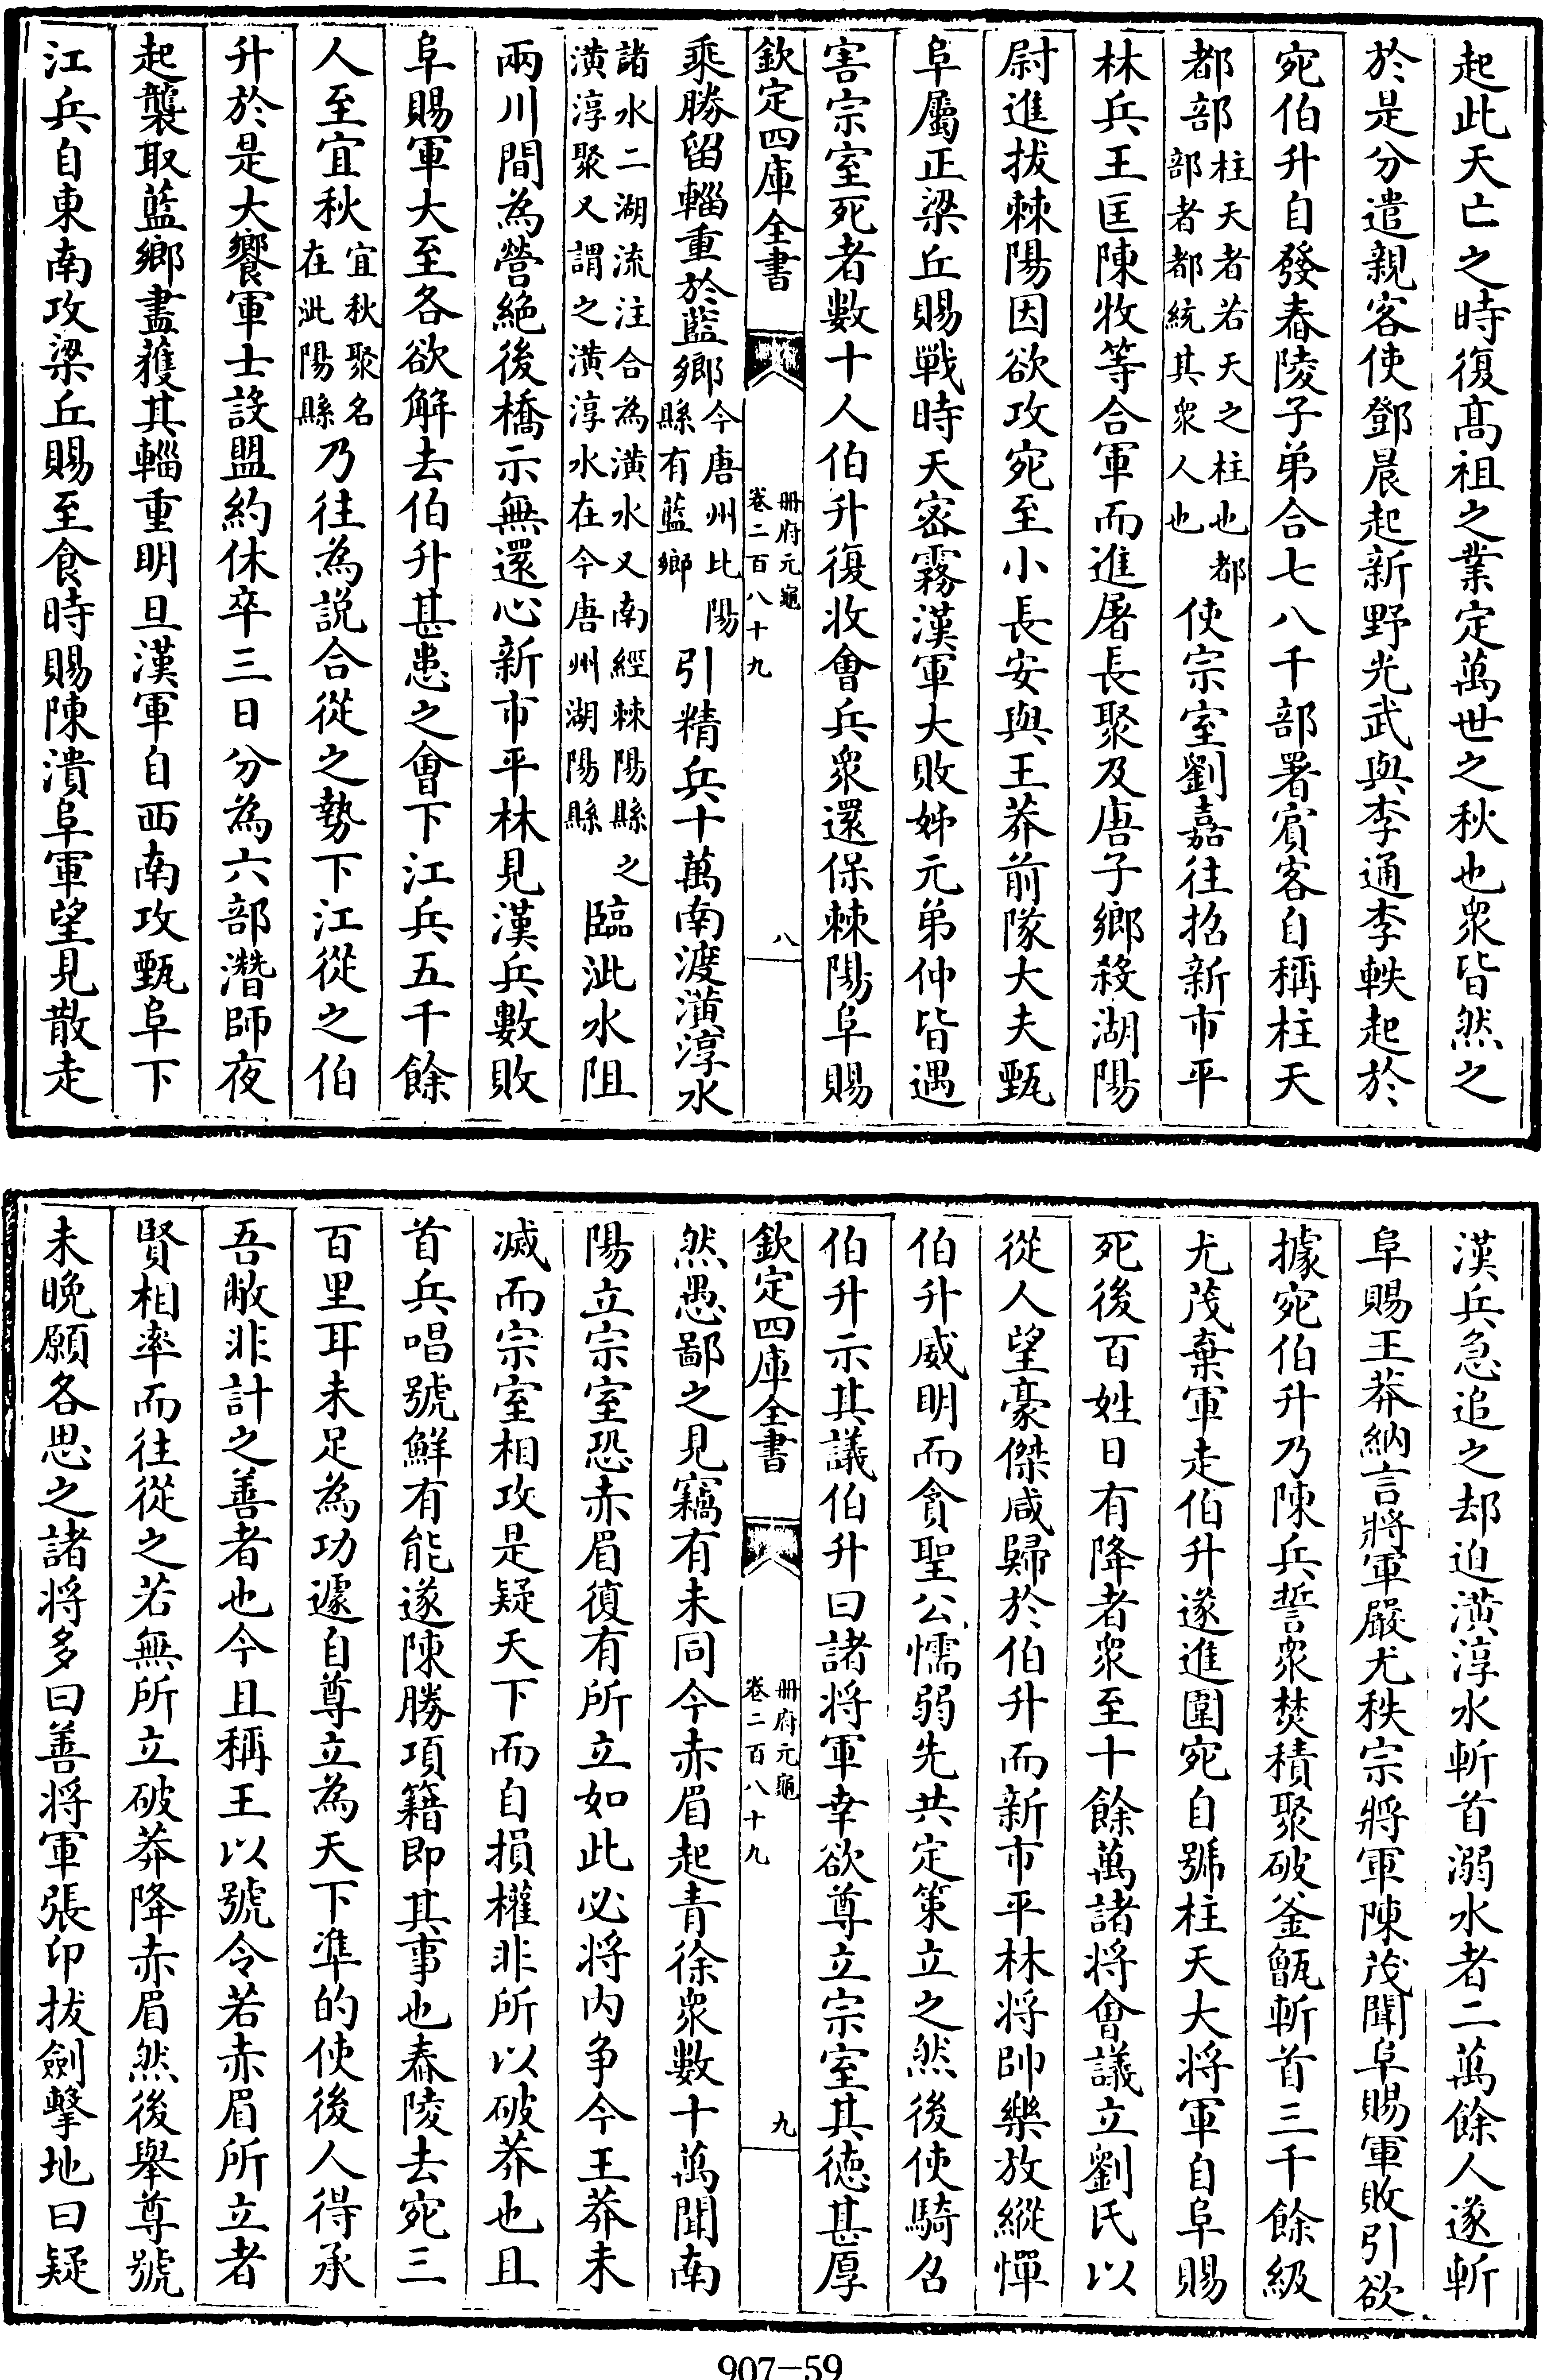 起此天亡之時復髙祖之業定萬世之秋也衆皆然之
於是分遣親客使鄧晨起新野光武與李通李軼起於
宛伯升自發舂陵子弟合七八千部署賔客自稱柱天
都部柱天者若天之柱也都部者都統其衆人也使宗室劉嘉往招新市平
林兵王匡陳牧等合軍而進屠長聚及唐子鄉殺湖陽
尉進拔棘陽因欲攻宛至小長安與王莽前隊大夫甄
阜屬正梁丘賜戰時天密霧漢軍大敗姊元弟仲皆遇
害宗室死者數十人伯升復收會兵衆還保棘陽阜賜
欽定四庫全書 冊府元龜卷二百八十九 八
乘勝留輜重於藍鄉今唐州比陽縣有藍鄉引精兵十萬南渡潢淳水
諸水二湖流注合為潢水又南經棘陽縣之潢淳聚又謂之潢淳水在今唐州湖陽縣臨沘水阻
兩川間為營絶後橋示無還心新市平林見漢兵數敗
阜賜軍大至各欲解去伯升甚患之會下江兵五千餘
人至宜秋宜秋聚名在沘陽縣乃往為説合從之勢下江從之伯
升於是大饗軍士設盟約休卒三日分為六部潛師夜
起襲取藍鄉盡獲其輜重明旦漢軍自西南攻甄阜下
江兵自東南攻梁丘賜至食時賜陳潰阜軍望見散走
漢兵急追之却迫潢淳水斬首溺水者二萬餘人遂斬
阜賜王莽納言將軍嚴尤秩宗將軍陳茂聞阜賜軍敗引欲
據宛伯升乃陳兵誓衆焚積聚破釜甑斬首三千餘級
尤茂棄軍走伯升遂進圍宛自號柱天大将軍自阜賜
死後百姓日有降者衆至十餘萬諸将會議立劉氏以
從人望豪傑咸歸於伯升而新市平林将帥樂放縱憚
伯升威明而貪聖公懦弱先共定策立之然後使騎召
伯升示其議伯升曰諸将軍幸欲尊立宗室其徳甚厚
欽定四庫全書 冊府元龜卷二百八十九 九
然愚鄙之見竊有未同今赤眉起青徐衆數十萬聞南
陽立宗室恐赤眉復有所立如此必将内争今王莽未
滅而宗室相攻是疑天下而自損權非所以破莽也且
首兵唱號鮮有能遂陳勝項籍即其事也舂陵去宛三
百里耳未足為功遽自尊立為天下凖的使後人得承
吾敝非計之善者也今且稱王以號令若赤眉所立者
賢相率而往從之若無所立破莽降赤眉然後舉尊號
未晩願各思之諸将多曰善将軍張卬拔劍擊地曰疑
907-59